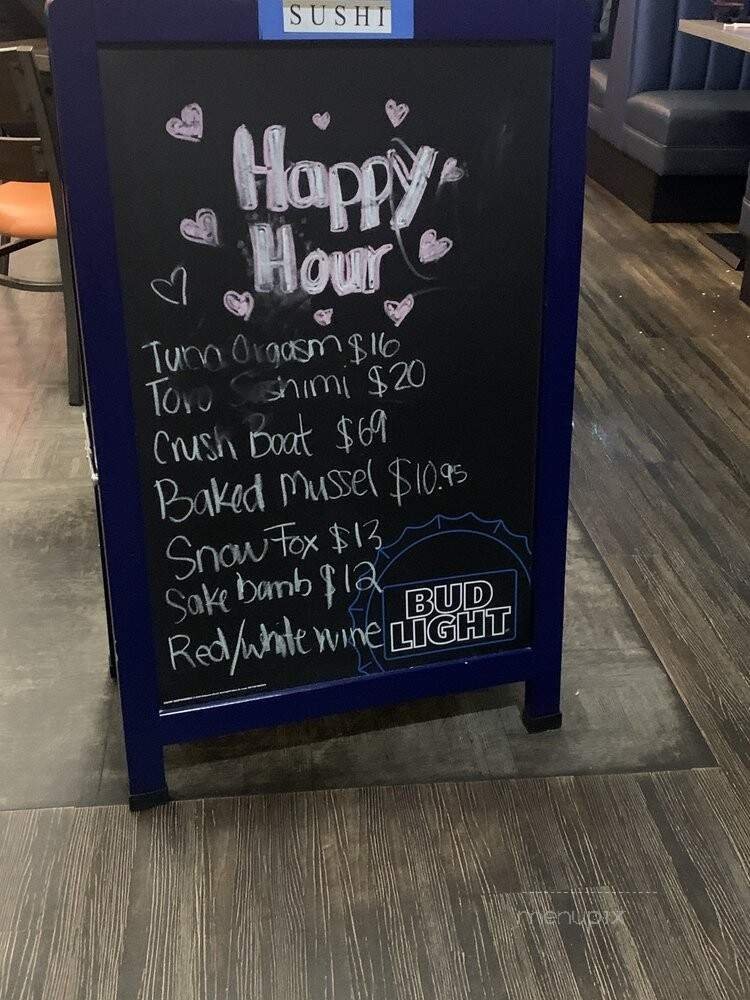 SUSHI
Happy
Hour
Tuna Orgasm $16
Toro Sashimi $20
Crush Boat $69
Baked Mussel $10.95
Snow Fox $13
Sake bamb $12
Red/white wine
BUD
LIGHT
menupix